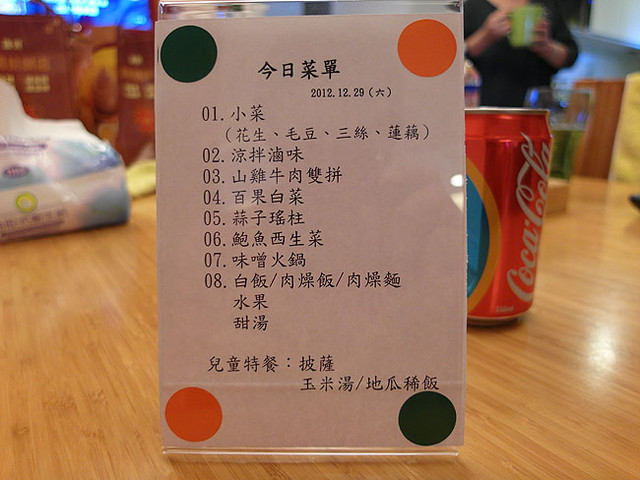 今日菜單
2012.12.29(六)
01.小菜
(花生、毛豆、三絲、蓮藕)
02.涼拌滷味
03.山雞牛肉雙拼
04.百果白菜
05.蒜子瑤柱
06.鮑魚西生菜
07.味噌火鍋
08.白飯/肉燥飯/肉燥麵
水果
甜湯
兒童特餐：披薩
玉米湯/地瓜稀飯
Coca-Cola